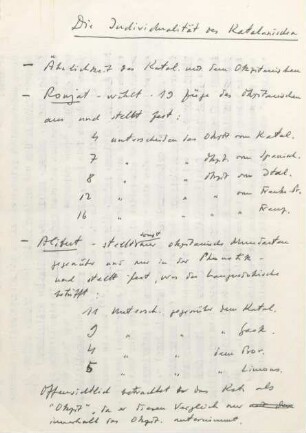 Die Individualität des Katalanischen
– Ähnlichkeit des Katal. mit dem Okzitanischen
– Ronjat – wählt – 19 Züge des Okzitanischen
aus und stellt fest:
4 unterscheiden das Okzit vom Katal.
7 " Okzit. vom Spanisch.
8 " Okzit vom Ital.
12 " " vom Frankopr.
16 " " Franz.
– Alibert – stellt vier okzitanische Mundarten
gegenüber und nur in der Phonetik
und stellt fest, was das Languedokische
betrifft:
11 Untersch. gegenüber dem Katal.
9 " " Gask.
4 " dem Prov.
5 " " Limous.
Offensichtlich betrachtet er das Kat. als
"Okzit", da er diesen Vergleich nur
innerhalb des Okzit. unternimmt.